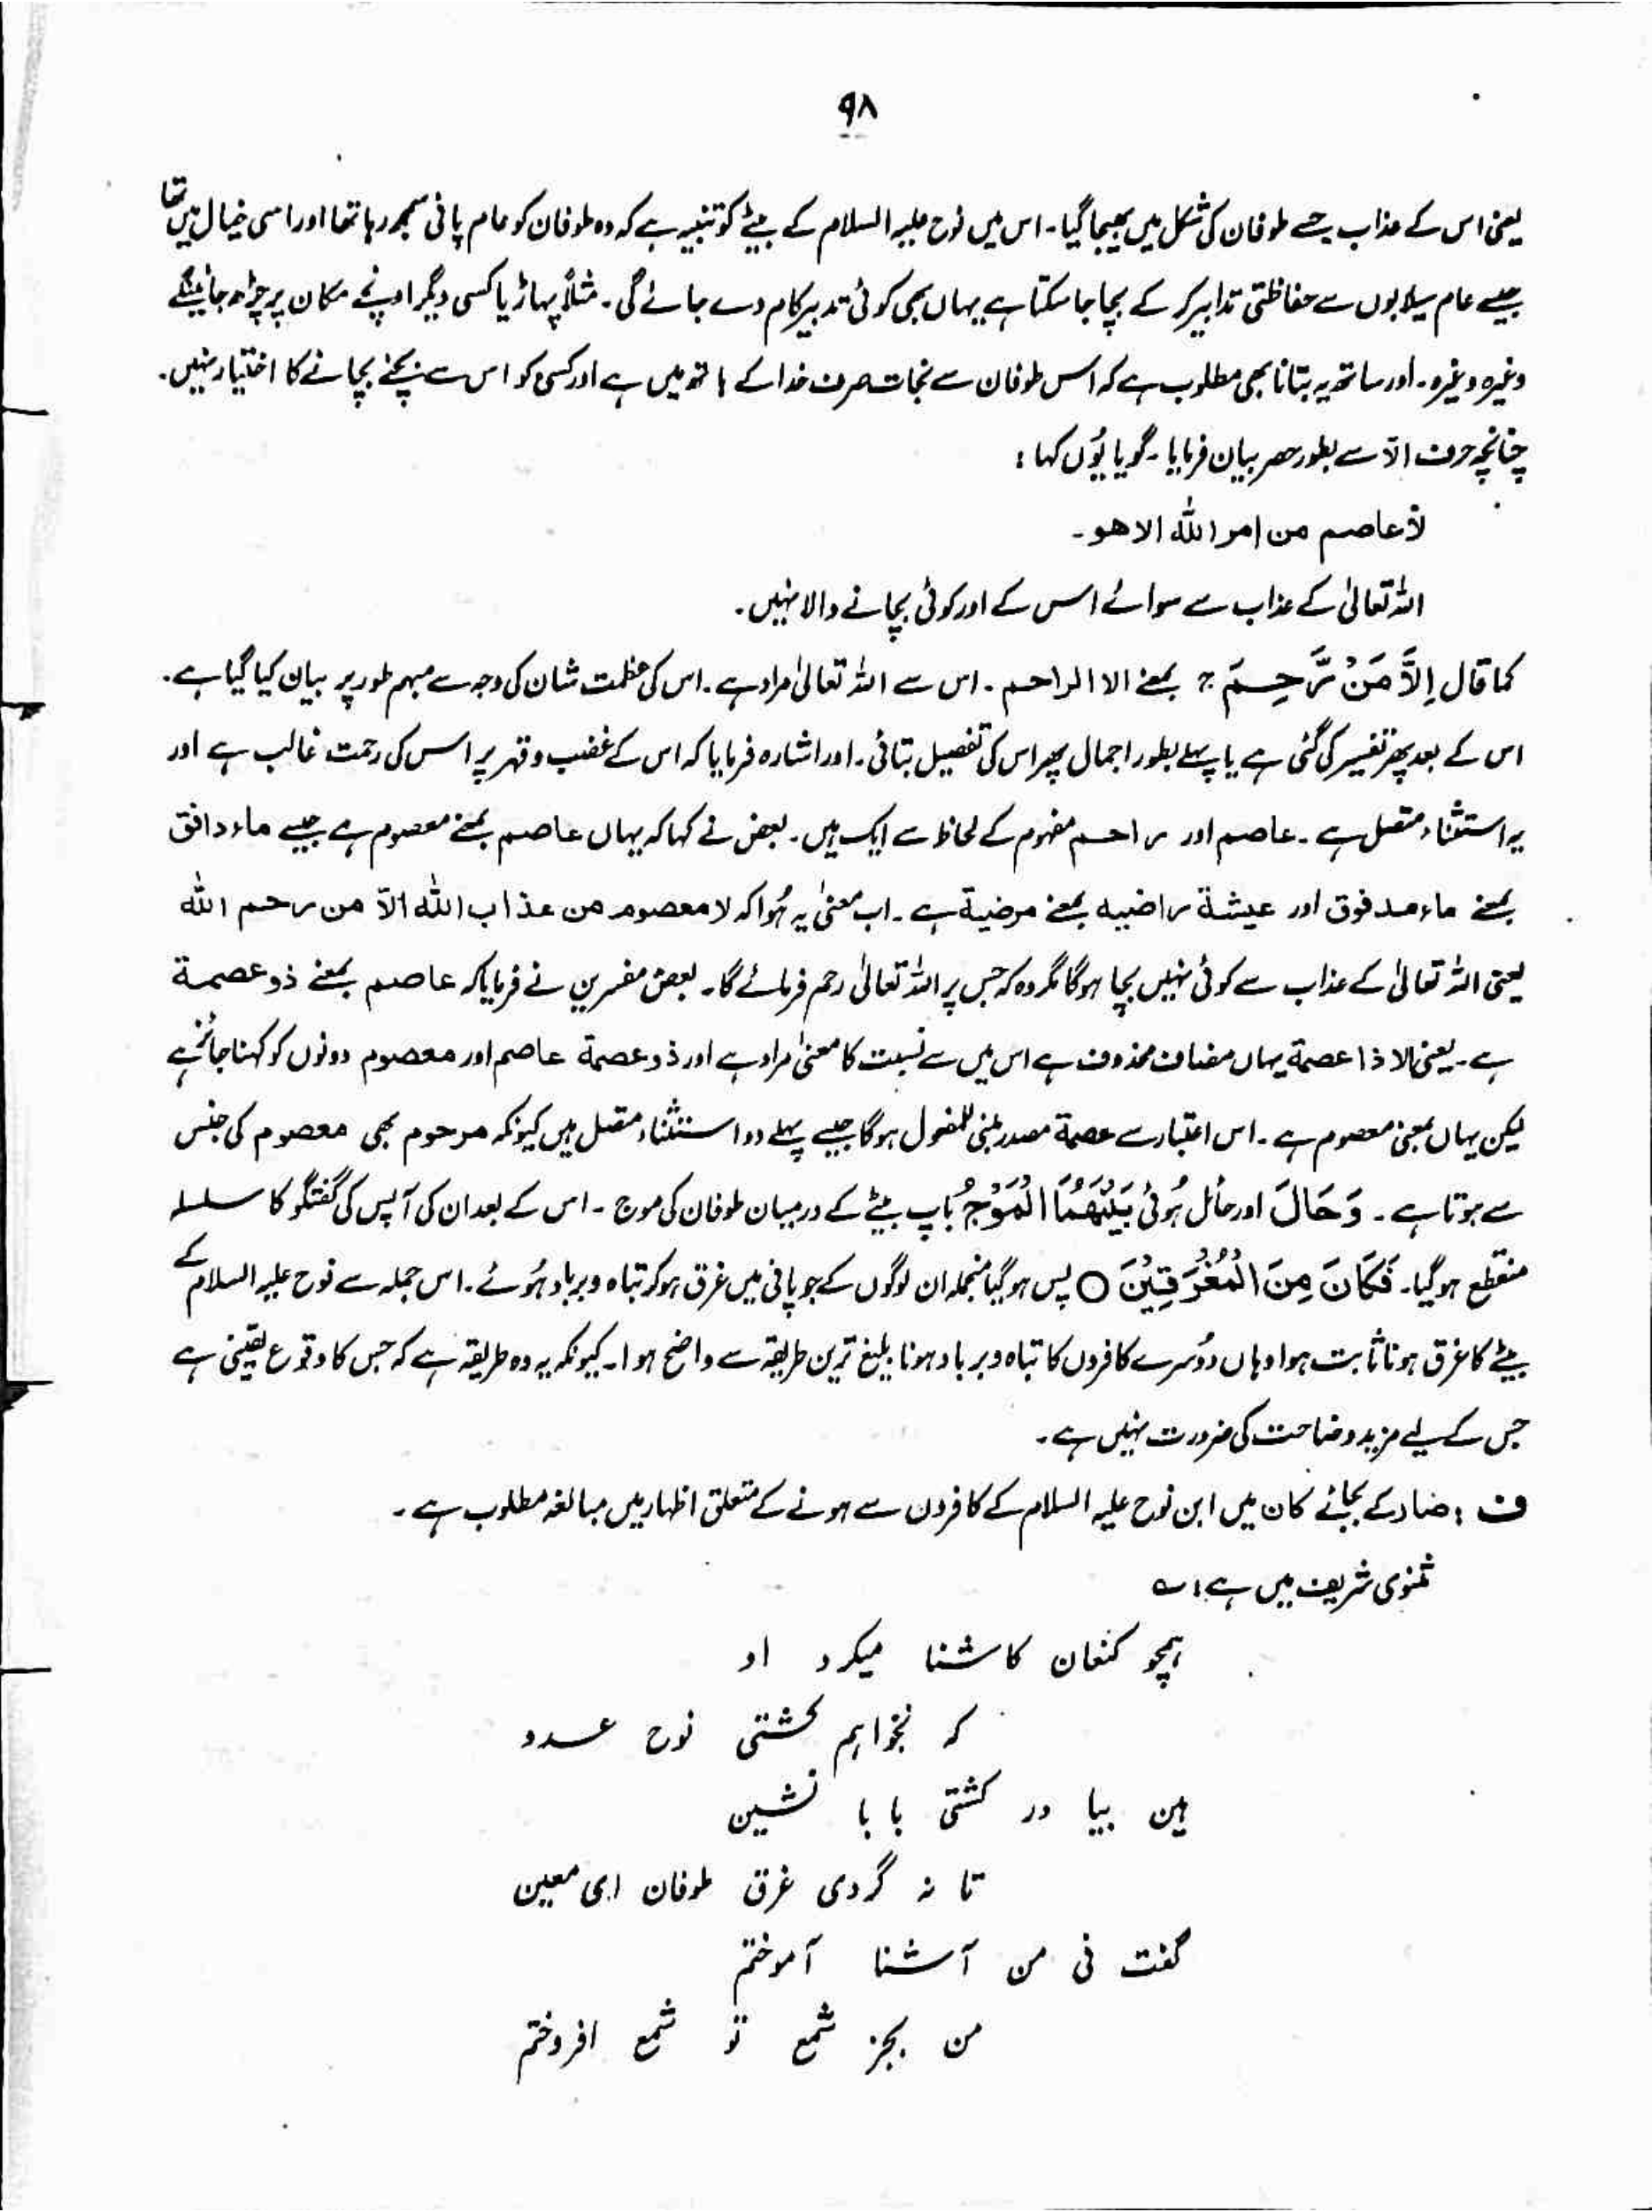 ۹۸
یعنی اس کے عذاب جسے طوفان کی شکل میں بھیجا گیا۔ اس میں نوح علیہ السلام کے بیٹے کو تنبیہ ہے کہ وہ طوفان کو عام پانی سمجھ رہا تھا اور اسی خیال میں تھا
جیسے عام سیلابوں سے حفاظتی تدابیر کر کے بچا جا سکتا ہے یہاں بھی کوئی تدبیر کام دے جائے گی۔ مثلاً پہاڑ یا کسی دیگر اونچے مکان پر چڑھ جائینگے
وغیرہ وغیرہ۔ اور ساتھ یہ بتانا بھی مطلوب ہے کہ اس طوفان سے نجات صرف خدا کے ہاتھ میں ہے اور کسی کو اس سے بچنے بچانے کا اختیار نہیں۔
چنانچہ حرف الاّ سے بطور حصر بیان فرمایا۔ گویا یُوں کہا :
لا عاصم من امر اللّٰہ الا ھو۔
اللہ تعالیٰ کے عذاب سے سوائے اس کے اور کوئی بچانے والا نہیں۔
کما قال اِلَّا مَنْ رَّحِمَ ج بمعنے الا الراحم۔ اس سے اللہ تعالیٰ مراد ہے۔ اس کی عظمت شان کی وجہ سے مبہم طور پر بیان کیا گیا ہے۔
اس کے بعد پھر تفسیر کی گئی ہے یا پہلے بطور اجمال پھر اس کی تفصیل بتائی۔ اور اشارہ فرمایا کہ اس کے غضب و قہر پر اس کی رحمت غالب ہے اور
یہ استثناء متصل ہے۔ عاصم اور راحم مفہوم کے لحاظ سے ایک ہیں۔ بعض نے کہا کہ یہاں عاصم بمعنے معصوم ہے جیسے ماء دافق
بمعنے ماء مدفوق اور عیشة راضیہ بمعنے مرضیة ہے۔ اب معنیٰ یہ ہُوا کہ لا معصوم من عذاب اللّٰہ الاّ من رحم اللّٰہ
یعنی اللہ تعالیٰ کے عذاب سے کوئی نہیں بچا ہوگا مگر وہ کہ جس پر اللہ تعالیٰ رحم فرمائے گا۔ بعض مفسرین نے فرمایا کہ عاصم بمعنے ذو عصمة
ہے۔ یعنی الا ذا عصمة یہاں مضاف محذوف ہے اس میں سے نسبت کا معنیٰ مراد ہے اور ذو عصمة عاصم اور معصوم دونوں کو کہنا جائز ہے
لیکن یہاں بمعنی معصوم ہے۔ اس اعتبار سے عصمة مصدر مبنی للمفول ہوگا جیسے پہلے دو استثناء متصل ہیں کیونکہ مرحوم بھی معصوم کی جنس
سے ہوتا ہے۔ وَحَالَ اور حائل ہُوئی بَیْنَھُمَا الْمَوْجُ باپ بیٹے کے درمیان طوفان کی موج۔ اس کے بعد ان کی آپس کی گفتگو کا سلسلہ
منقطع ہو گیا۔ فَکَانَ مِنَ الْمُغْرَقِیْنَ ○ پس ہو گیا منجملہ ان لوگوں کے جو پانی میں غرق ہو کر تباہ و برباد ہُوئے۔ اس جملہ سے نوح علیہ السلام کے
بیٹے کا غرق ہونا ثابت ہوا وہاں دُوسرے کافروں کا تباہ و برباد ہونا بلیغ ترین طریقہ سے واضح ہوا۔ کیونکہ یہ وہ طریقہ ہے کہ جس کا وقوع یقینی ہے
جس کے لیے مزید وضاحت کی ضرورت نہیں ہے۔
ف : ضاد کے بجائے کان میں ابن نوح علیہ السلام کے کافروں سے ہونے کے متعلق اظہار میں مبالغہ مطلوب ہے۔
ثمنوی شریف میں ہے : ؎
ہمچو کنعان کاشنا میکرد او
کہ نخواہم کشتی نوح عدو
ہین بیا در کشتی بابا نشین
تا نہ گردی غرق طوفان ای معین
گفت نی من آشنا آموختم
من بجز شمع تو شمع افروختم